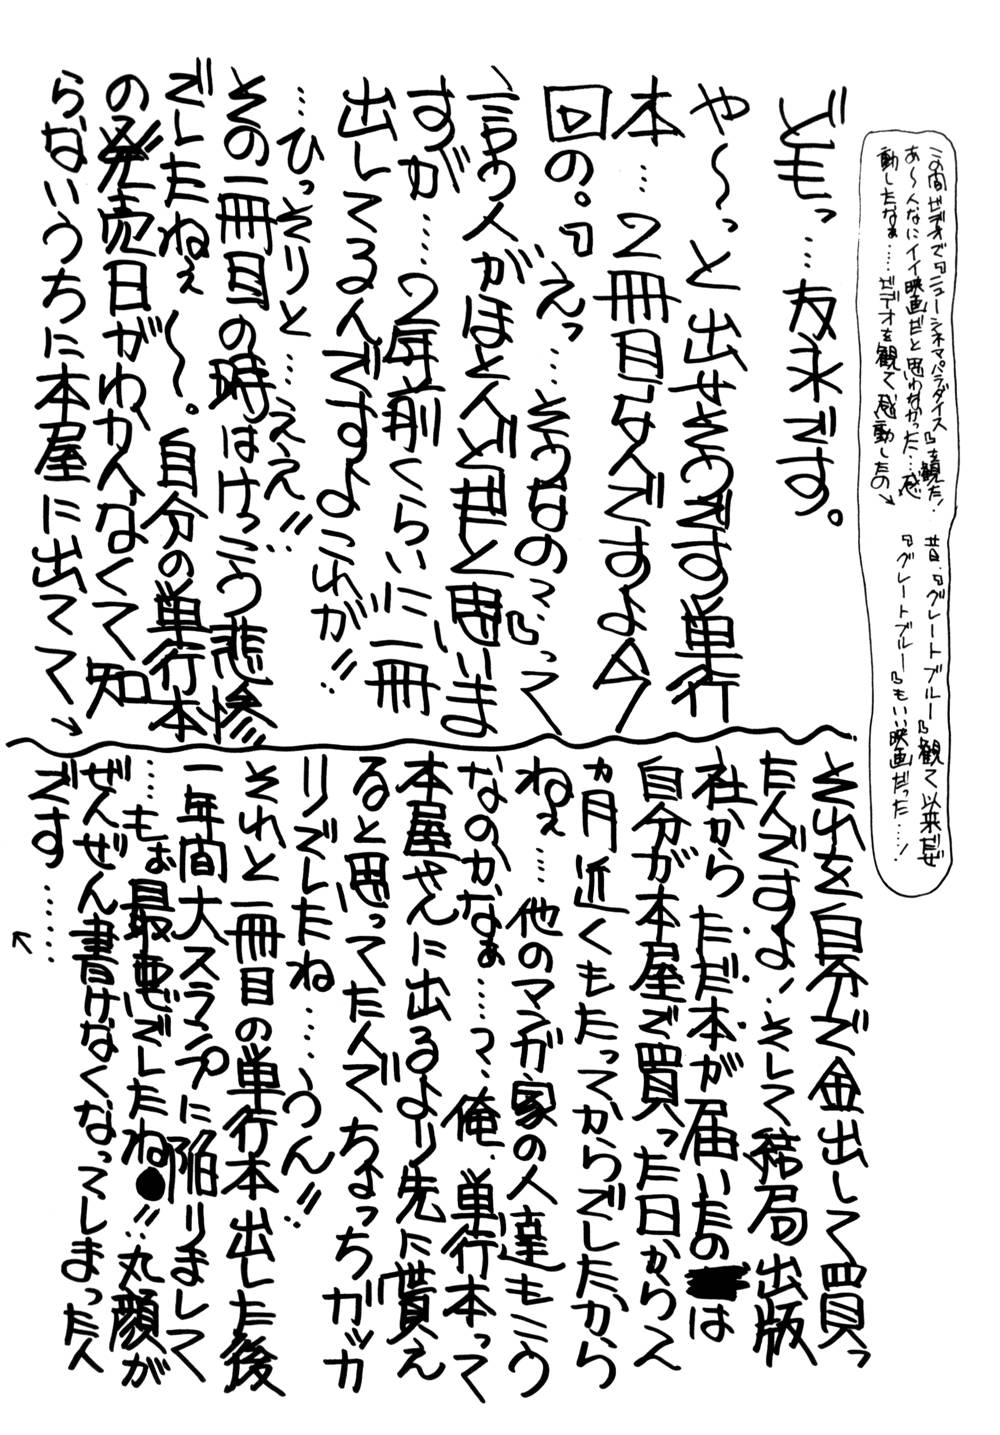 ども……友永です。
や～っと出せそうです単行
本…2冊目なんですよ今
回の。『えっ…そうなの？』って
言う人がほとんどだと思いま
すが……2年前くらいに一冊
出してるんですよこれが!!
…ひっそりと……ええ!!
その一冊目の時はけっこう悲惨
でしたねぇ～。自分の単行本
の発売日がわかんなくて知
らないうちに本屋に出てて→
それを自分で金出して買っ
たんですよ、そして結局出版
社からただ本が届いたのは
自分が本屋で買った日から一
ヵ月近くもたってからでしたから
ねぇ……他のマンガ家の人達もこう
なのかなぁ……？俺、単行本って
本屋さんに出るより先に貰え
ると思ってたんでちょっちガッカ
リでしたね……うん!!
それと一冊目の単行本出した後
一年間大スランプに陥りまして
…もぉ最悪でしたね!!丸顔が
ぜんぜん書けなくなってしまったん
です……
↑
この間ビデオで『ニューシネマパラダイス』を観た!
あ～んなにイイ映画だと思わなかった…感
動したなぁ……ビデオを観て感動したの→
昔、『グレートブルー』観て以来だぜ
『グレートブルー』もいい映画だった……!